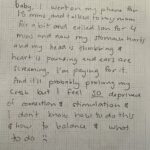 baby, I went on my phone for
15 mins and talked to my mum
for a bit and edited son for 4
mins and now my stomach hurts
and my head is thumbing &
heart is pounding and ears are
screaming. I'm paying for it.
And I'll probably prolong my
crash but I feel SO deprived
of connection & stimulation &
I don't know how to do this
& how to balance & what
to do